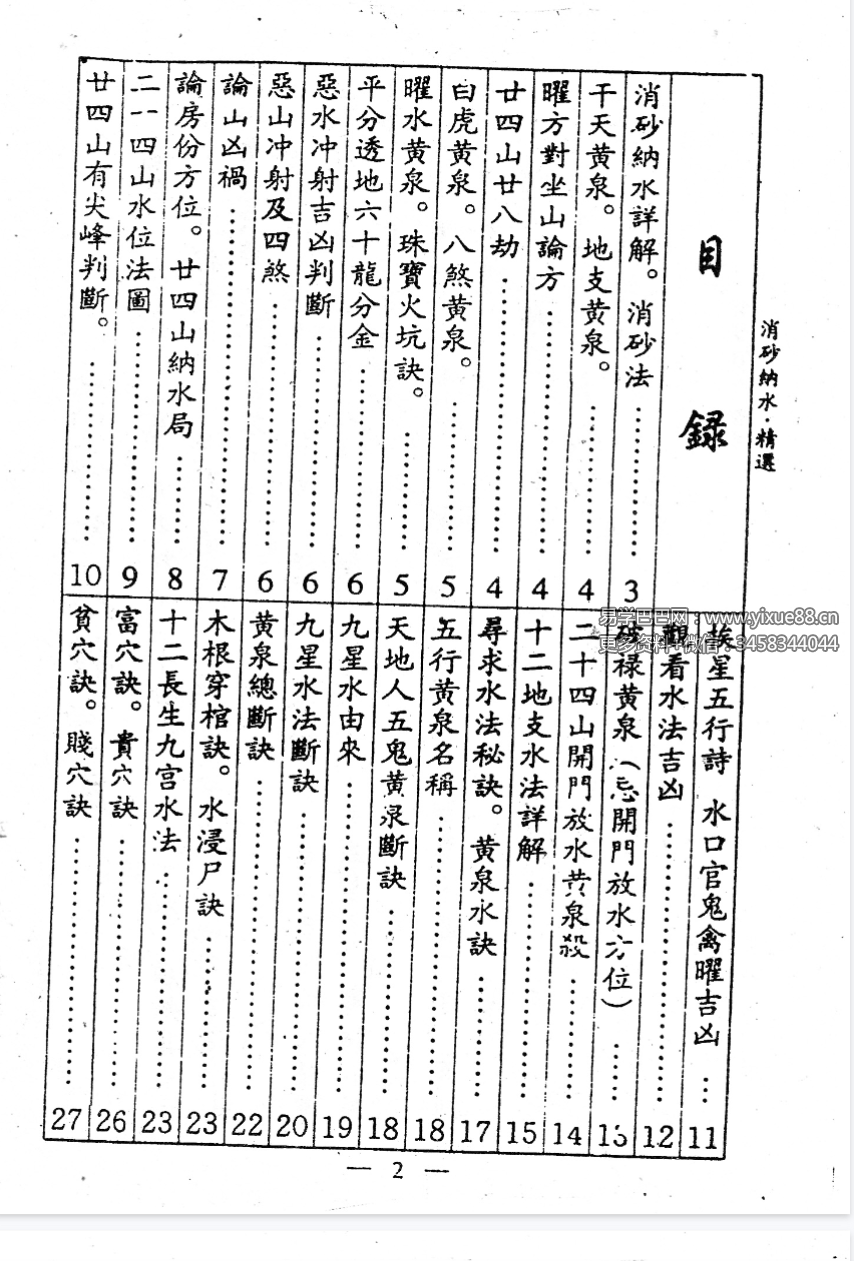 消砂納水·精選
目錄
消砂納水詳解。消砂法……3
干天黄泉。地支黄泉。……4
曜方對坐山論方……4
廿四山廿八劫……4
白虎黄泉。八煞黄泉。……5
曜水黄泉。珠寶火坑訣。……5
平分透地六十龍分金……6
惡水冲射吉凶判斷……6
惡山冲射及四煞……6
論山凶禍……7
論房份方位。廿四山納水局……8
二一四山水位法圖……9
廿四山有尖峰判斷。……10
挨星五行詩 水口官鬼禽曜吉凶…11
觀看水法吉凶……12
破禄黄泉(忌開門放水方位)……13
二十四山開門放水黄泉殺……14
十二地支水法詳解……15
尋求水法秘訣。黄泉水訣……17
五行黄泉名稱……18
天地人五鬼黄泉斷訣……18
九星水由來……19
九星水法斷訣……20
黄泉總斷訣……22
木根穿棺訣。水浸尸訣……23
十二長生九宫水法……23
富穴訣。貴穴訣……26
貧穴訣。賤穴訣……27
— 2 —
易学巴巴网:www.yixue88.cn
更多资料+微信:3458344044